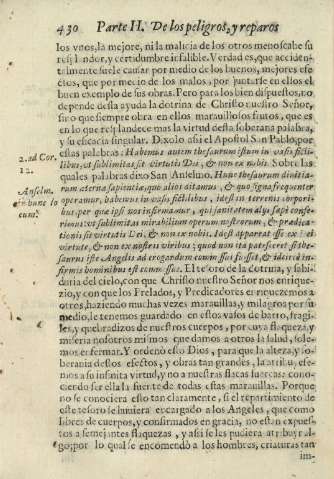 430 Parte II. De los peligros, y reparos
los vnos, la mejore, ni la malicia de los otros menoscabe su
resplandor, y certidumbre infalible. Verdad es, que acciden-
talmente suele causar por medio de los buenos, mejores efe-
ctos, que por medio de los malos, por juntarse en ellos el
buen exemplo de sus obras. Pero para los bien dispuestos, no
depende desta ayuda la dotrina de Christo nuestro Señor,
sino que siempre obra en ellos marauillosos frutos, que es
en lo que resplandece mas la virtud desta soberana palabra,
y su eficacia singular. Dixolo assi el Apostol San Pablo, por
2. ad Cor. estas palabras: Habemus autem thesaurum istum in vasis ficti-
12. libus, vt sublimitas sit virtutis Dei, & non ex nobis. Sobre las
quales palabras dixo San Anselmo. Hunc thesaurum diuitia-
Anselm. rum aeterna sapientia, quo alios ditamus, & quo signa frequenter
in hunc lo operamur, habemus in vasis fictilibus, idest in terrenis corpori-
cum. bus, per quae ipsi nos infirmamur, qui sanitatem alijs sapè confe-
rimus: vt sublimitas mirabilium operum nostrorum, & praedica-
tionis sit virtutis Dei, & non ex nobis. Idest appareat esse ex Dei
virtute, & non ex nostris viribus; quod non ita pateseret, si the-
saurus iste Angelis ad erogandum commissus fuisset, & idcirco in-
firmis hominibus est commissus. El tesoro de la dotrina, y sabi-
duria del cielo, con que Christo nuestro Señor nos enrique-
zio, y con que los Prelados, y Predicadores enriquezemos a
otros, haziendo muchas vezes marauillas, y milagros por su
medio, le tenemos guardado en estos vasos de barro, fragi-
les, y quebradizos de nuestros cuerpos, por cuya flaqueza, y
miseria nosotros mismos que damos a otros la salud, sole-
mos enfermar. Y ordenò esso Dios, para que la alteza, y so-
berania destos efectos, y obras tan grandes, la atribuyesse-
mos a su infinita virtud, y no a nuestras flacas fuerças: cono-
ciendo ser ella la fuente de todas estas marauillas. Porque
no se conociera esto tan claramente, si el repartimiento de
este tesoro se huuiera encargado a los Angeles, que como
libres de cuerpos, y confirmados en gracia, no están expues-
tos a semejantes flaquezas, y assi se les pudiera atribuyr al-
go; por lo qual se encomendò a los hombres, criaturas tan
im-